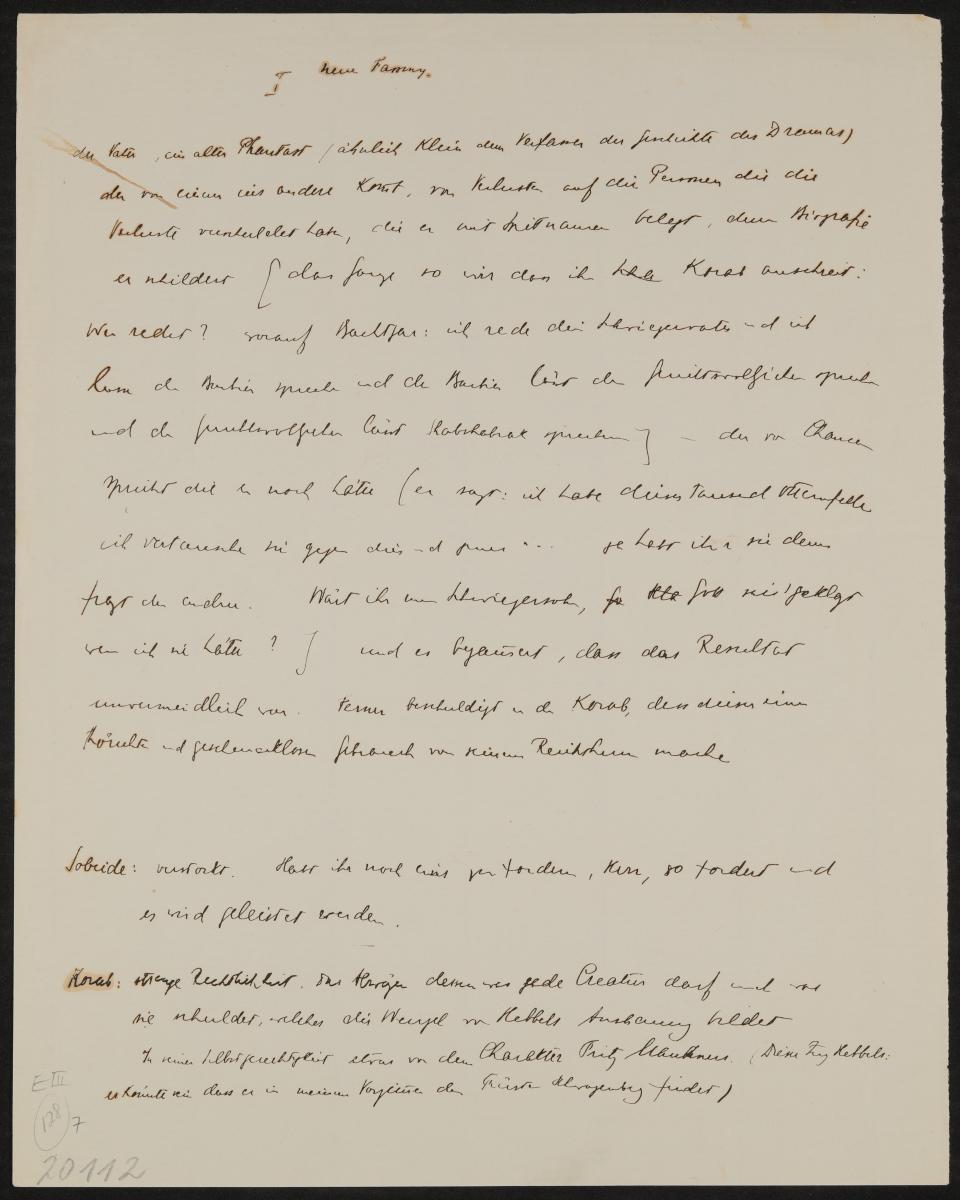 I neue Fassung.
der Vater, ein alter Phantast (ähnlich Klein dem Verfasser der Geschichte des Dramas)
der von einem ins andere Komt, von Verlusten auf die Personen die die
Verluste verschuldet haben, die er mit Spitznamen belegt, deren Biografie
er schildert [das Ganze so wirr dass ihn Korab anschreit:
Wer redet? worauf Bachtjar: ich rede dein Schwiegervater und ich
lasse den Bankier sprechen und der Bankier lässt den sprechen
und der lässt sprechen] – der von Chancen
spricht die er noch hätte (er sagt: ich habe diese Tausend Otternfelle
ich vertausche sie gegen dies und jenes ... ja habt ihr sie denn
fragt der andere. Wärt ihr mein Schwiegersohn, Gott sei's geklagt
wenn ich sie hätte?] und es begeistert, dass das Resultat
unvermeidlich war. Ferner beschuldigt er den Korab, dass dieser einen
und geschmacklosen Gebrauch von seinem Reichthum mache
Sobeide: verstockt. Habt ihr noch eins zu fordern, Herr, so fordert und
es wird geleistet werden.
Korab: strenge Rechtlichkeit. das Abwägen dessen was jede Creatur darf und was
sie schuldet, welches die Wurzel von Hebbels Anschauung bildet
In seiner Selbstgerechtigkeit etwas von dem Charakter Fritz Mauthners. (Dieser Zug Hebbels:
es könnte sein dass er in meinem Vergnügen den Fürsten Schwarzenberg findet)
E III
178
7
20112